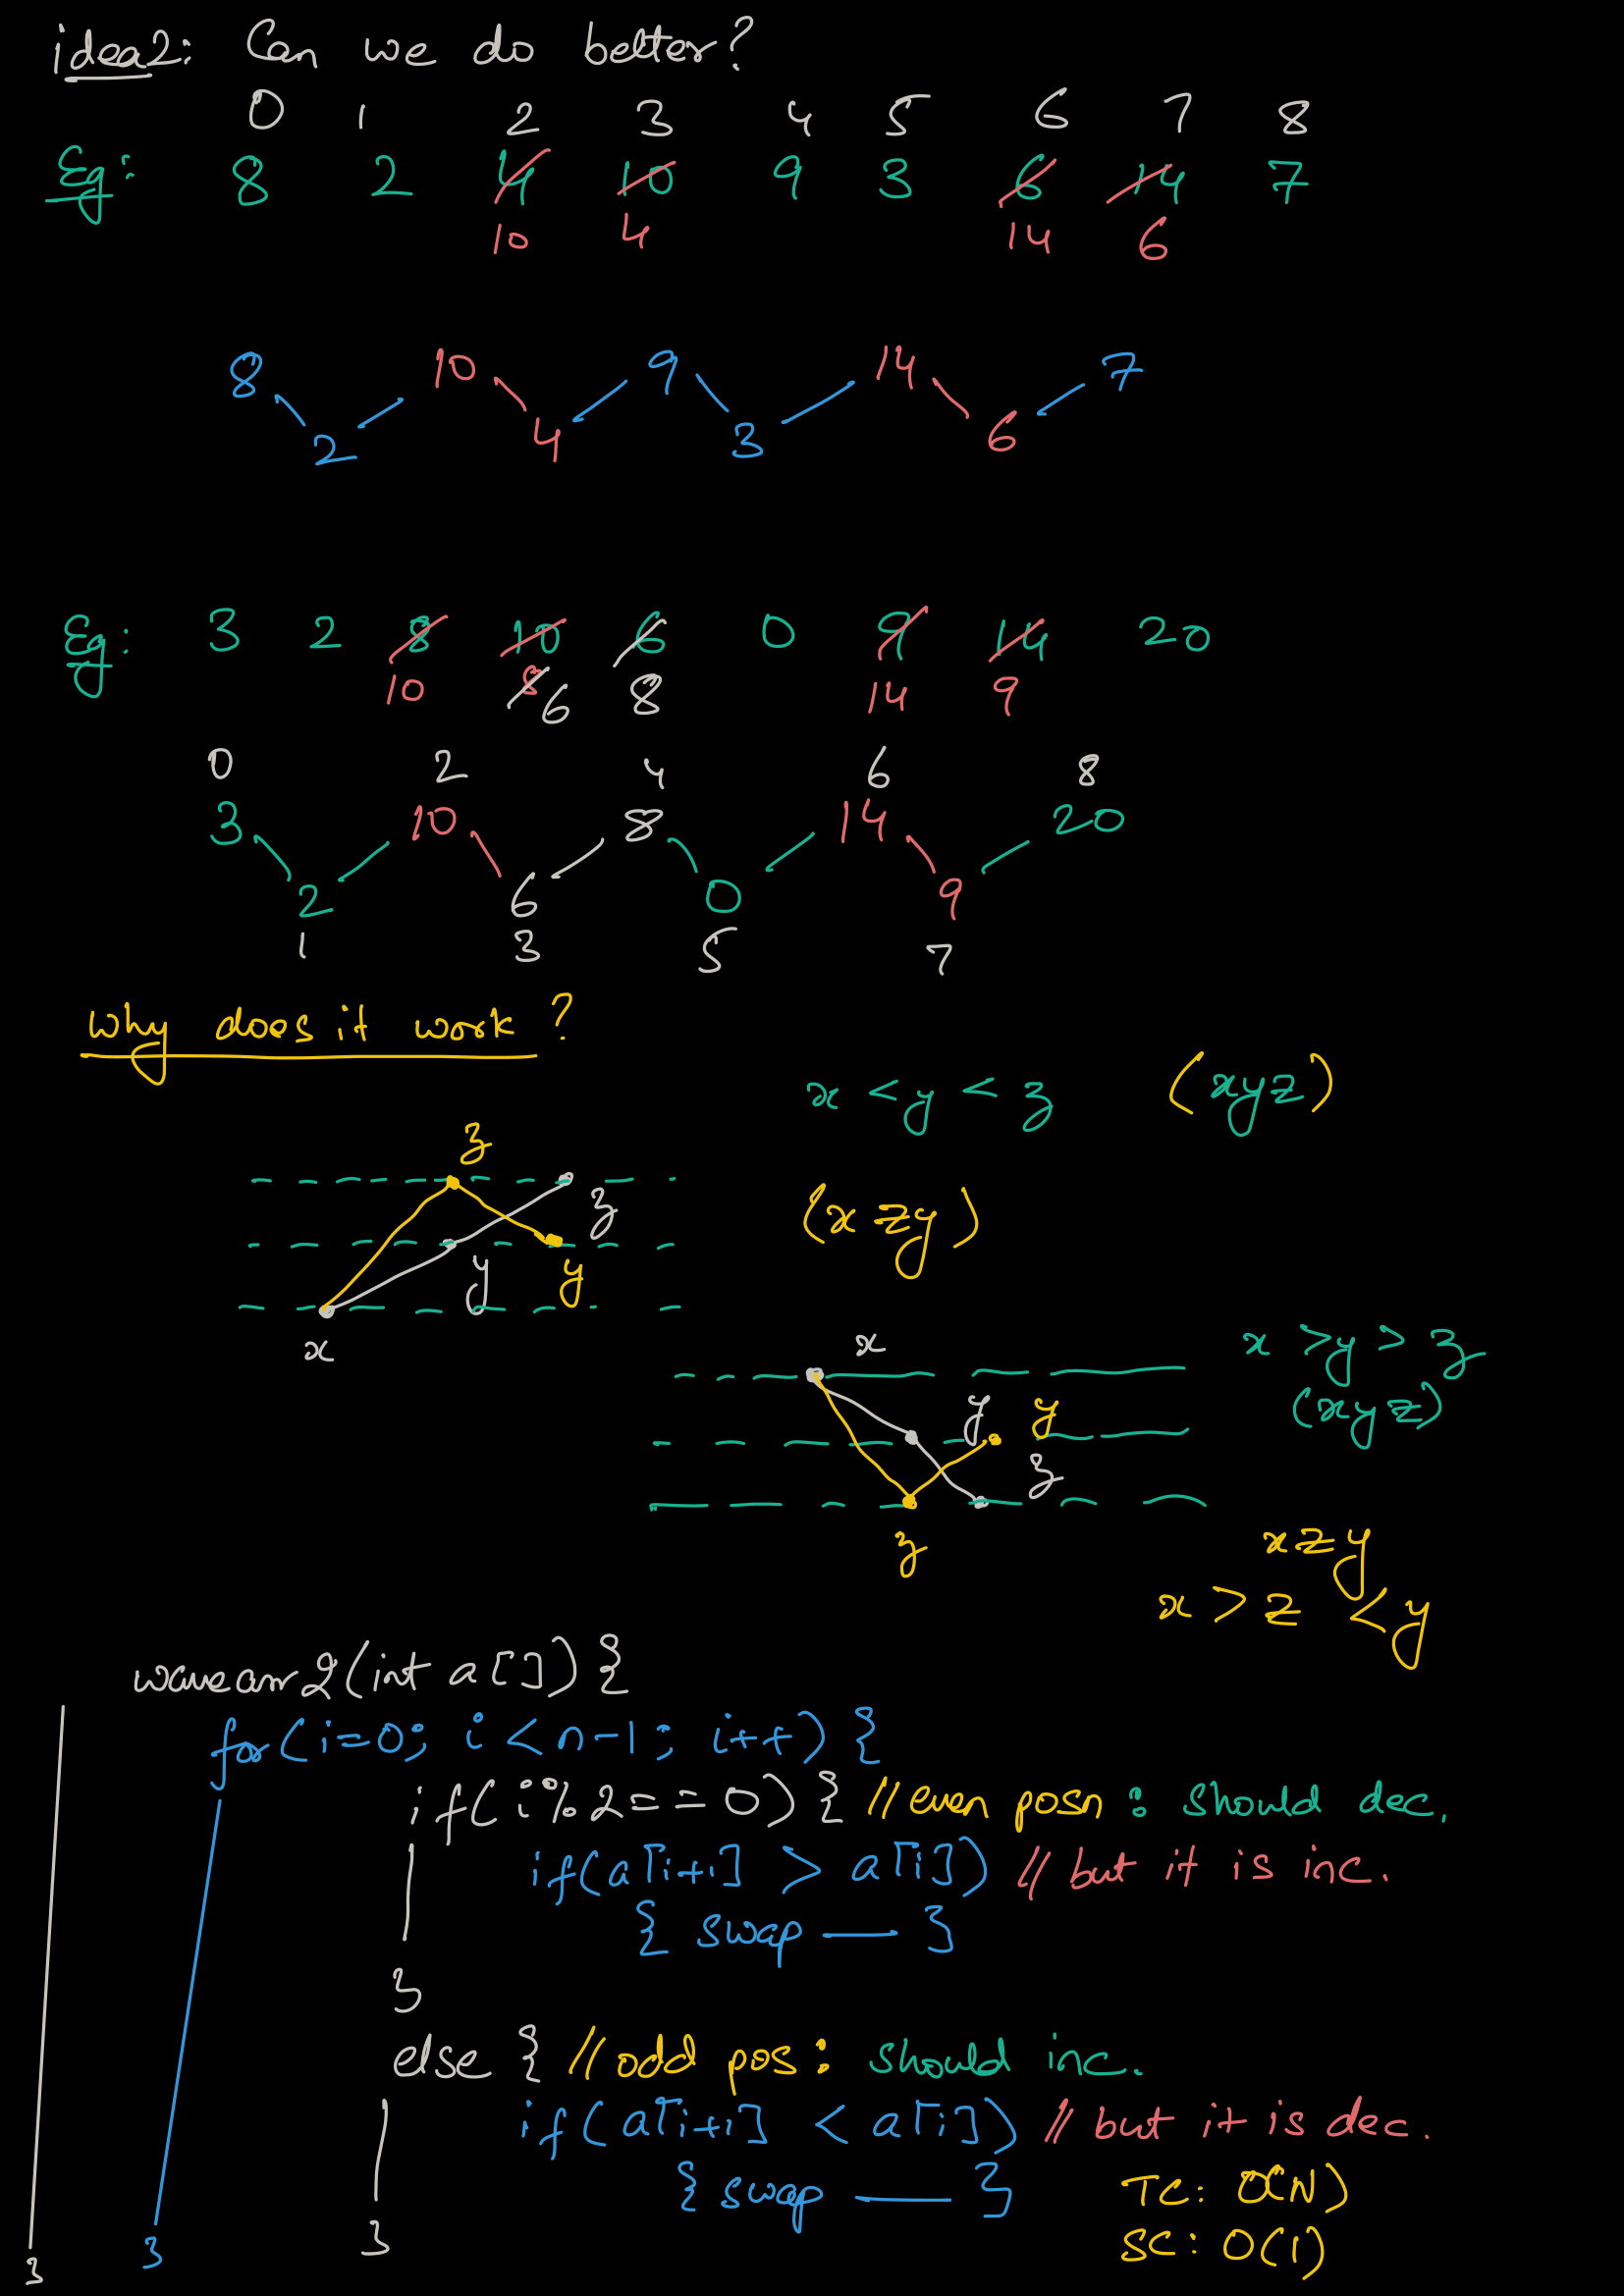 idea2: Can we do better?
0 1 2 3 4 5 6 7 8
Eg: 8 2 4 10 9 3 6 14 7
10 4 14 6
8 10 9 14 7
2 4 3 6
Eg: 3 2 8 10 6 0 9 14 20
10 8 6 8 14 9
0 2 4 6 8
3 10 8 14 20
2 6 0 9
1 3 5 7
Why does it work?
x < y < z (xyz)
z
z (x z y)
y y
x
x x > y > z
y y (xyz)
z
z x z y
x > z < y
wavearr2(int a[]) {
for(i=0; i < n-1; i++) {
if(i%2==0) { //even posn : should dec.
if(a[i+1] > a[i]) // but it is inc.
{ swap — }
}
else { //odd pos: should inc.
if(a[i+1] < a[i]) // but it is dec.
{ swap — } TC: O(N)
} SC: O(1)
}
}